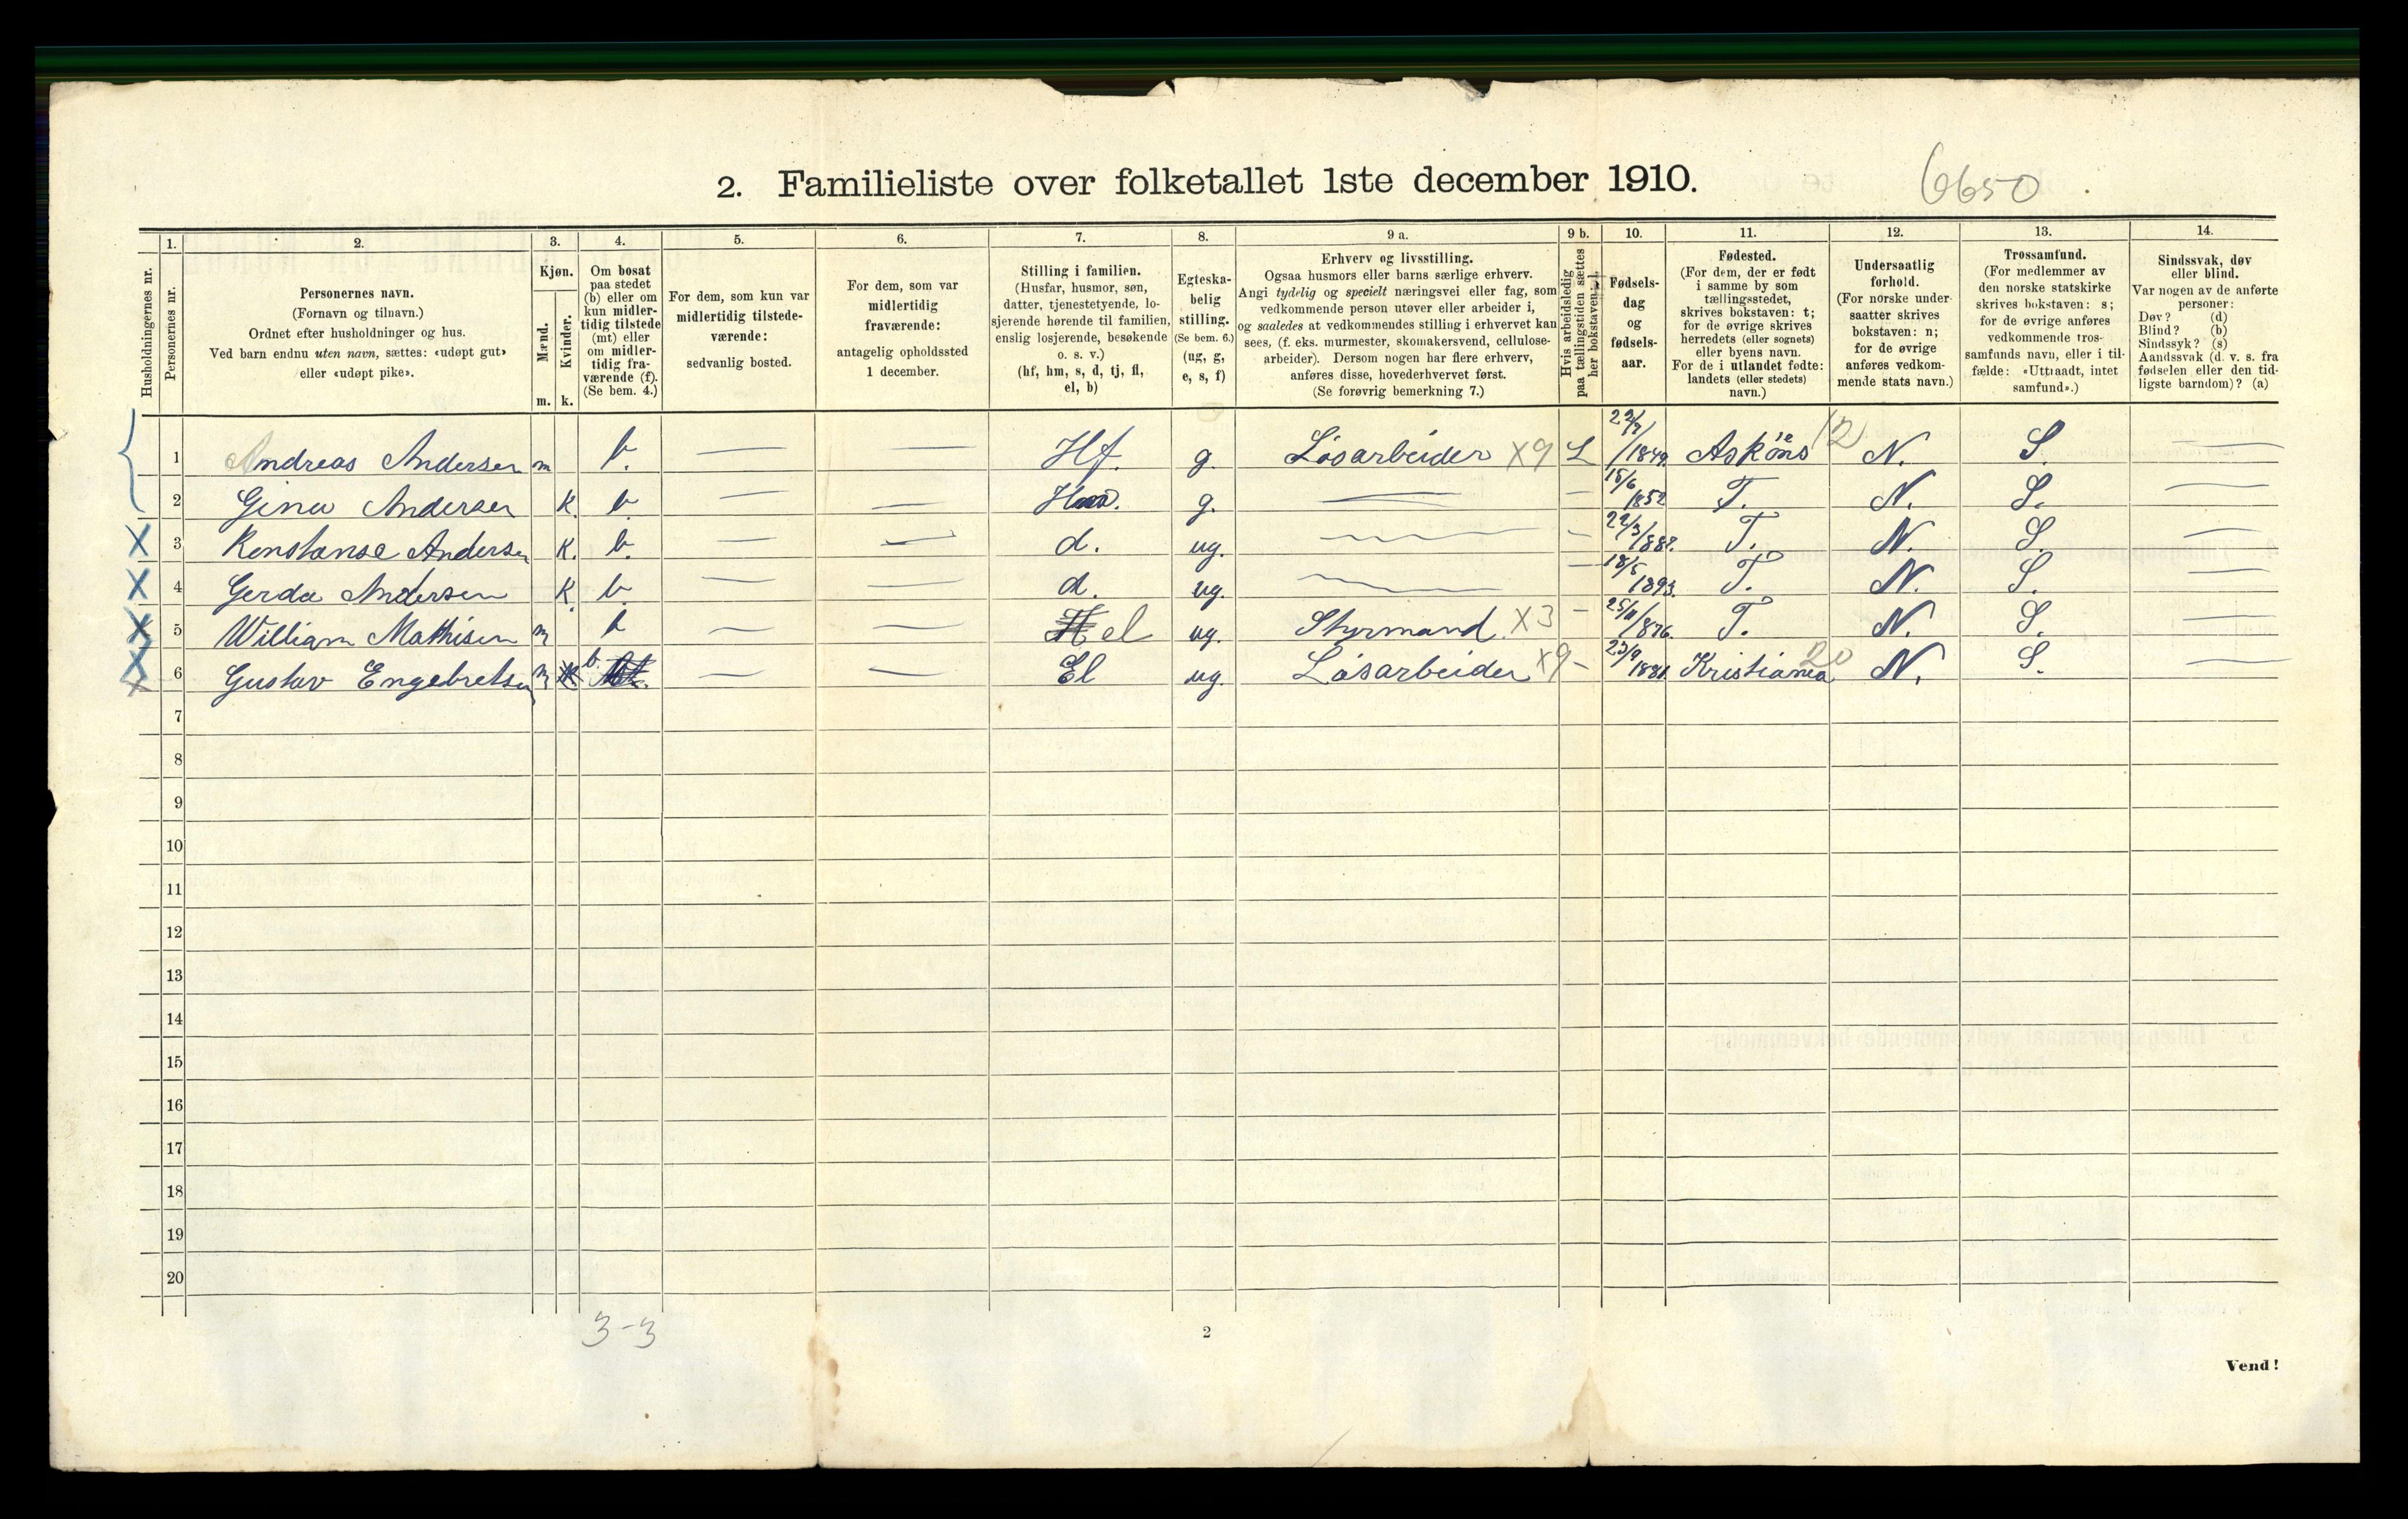 2. Familieliste over folketallet 1ste december 1910.
6650
Husholdningernes nr.
1.
Personernes nr.
2.
Personernes navn.
(Fornavn og tilnavn.)
Ordnet efter husholdninger og hus.
Ved barn endnu uten navn, sættes: «udøpt gut»
eller «udøpt pike».
3.
Kjøn.
Mænd.
Kvinder.
m. k.
4.
Om bosat
paa stedet
(b) eller om
kun midler-
tidig tilstede
(mt) eller
om midler-
tidig fra-
værende (f).
(Se bem. 4.)
5.
For dem, som kun var
midlertidig tilstede-
værende:
sedvanlig bosted.
6.
For dem, som var
midlertidig
fraværende:
antagelig opholdssted
1 december.
7.
Stilling i familien.
(Husfar, husmor, søn,
datter, tjenestetyende, lo-
sjerende hørende til familien,
enslig losjerende, besøkende
o. s. v.)
(hf, hm, s, d, tj, fl,
el, b)
8.
Egteska-
belig
stilling.
(Se bem. 6.)
(ug, g,
e, s, f)
9 a.
Erhverv og livsstilling.
Ogsaa husmors eller barns særlige erhverv.
Angi tydelig og specielt næringsvei eller fag, som
vedkommende person utøver eller arbeider i,
og saaledes at vedkommendes stilling i erhvervet kan
sees, (f. eks. murmester, skomakersvend, cellulose-
arbeider). Dersom nogen har flere erhverv,
anføres disse, hovederhvervet først.
(Se forøvrig bemerkning 7.)
9 b.
Hvis arbeidsledig
paa tællingstiden sættes
her bokstaven: l.
10.
Fødsels-
dag
og
fødsels-
aar.
11.
Fødested.
(For dem, der er født
i samme by som
tællingsstedet,
skrives bokstaven: t;
for de øvrige skrives
herredets (eller sognets)
eller byens navn.
For de i utlandet fødte:
landets (eller stedets)
navn.)
12.
Undersaatlig
forhold.
(For norske under-
saatter skrives
bokstaven: n;
for de øvrige
anføres vedkom-
mende stats navn.)
13.
Trossamfund.
(For medlemmer av
den norske statskirke
skrives bokstaven: s;
for de øvrige anføres
vedkommende tros-
samfunds navn, eller i til-
fælde: «Uttraadt, intet
samfund».)
14.
Sindssvak, døv
eller blind.
Var nogen av de anførte
personer:
Døv? (d)
Blind? (b)
Sindssyk? (s)
Aandssvak (d. v. s. fra
fødselen eller den tid-
ligste barndom)? (a)
1 Andreas Andersen m b. — — Hf. g. Løsarbeider X9 L /1849. 12 N. S. —
2 Gina Andersen K. b. — — g. — — 15/6 1852 T. N. S. —
X 3 Konstanse Andersen K. b. — — d. ug. — — T. N. S. —
X 4 Gerda Andersen K. b. — — d. ug. — — 18/5 1893. T. N. S. —
X 5 William Mathisen m b — — el ug. Styrmand X3 — 25/11 1876. T. N. S. —
X 6 Gustav Engebretsen m b. — — El ug. Løsarbeider X9 — 23/9 Kristiania 20 N. S. —
7
8
9
10
11
12
13
14
15
16
17
18
19
20
3-3
2
Vend!